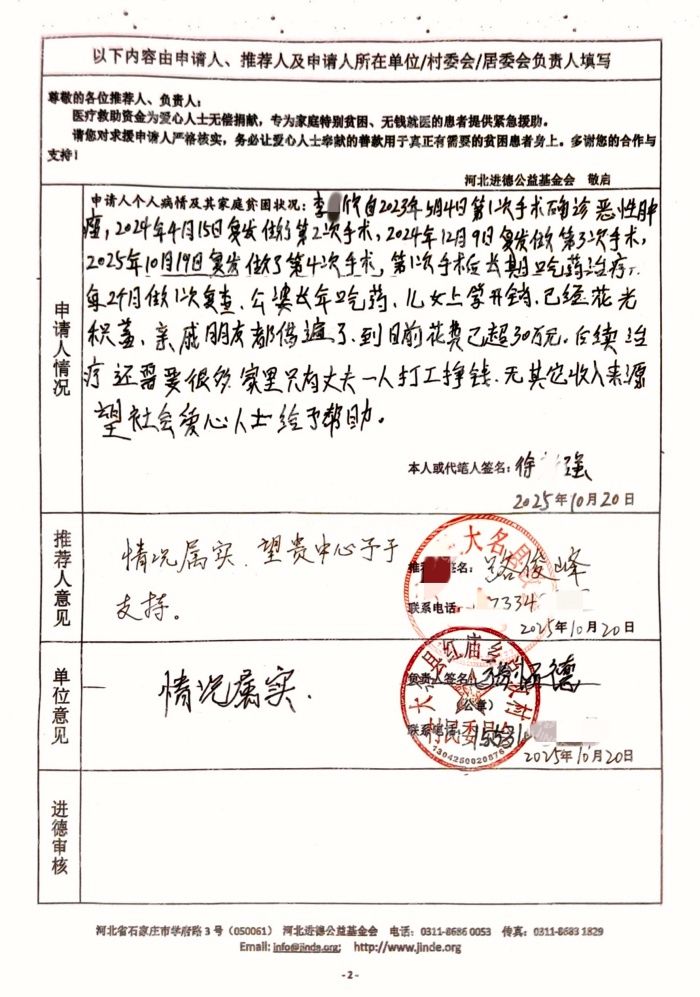 以下内容由申请人、推荐人及申请人所在单位/村委会/居委会负责人填写
尊敬的各位推荐人、负责人：
医疗救助资金为爱心人士无偿捐献，专为家庭特别贫困、无钱就医的患者提供紧急援助。
请您对求援申请人严格核实，务必让爱心人士奉献的善款用于真正有需要的贫困患者身上。多谢您的合作与
支持！
河北进德公益基金会 敬启
申请人情况
申请人个人病情及其家庭贫困状况：李 欣自2023年5月4日第1次手术确诊恶性肿
瘤，2024年4月15日复发做了第2次手术，2024年12月9日复发做第3次手术，
2025年10月19日复发做了第4次手术，第1次手术后长期吃药治疗，
每2个月做1次复查、公婆长年吃药、儿女上学开销、已经花光
积蓄、亲戚朋友都借遍了、到目前花费已超30万元。后续治
疗还需要很多、家里只有丈夫一人打工挣钱、无其它收入来源
望社会爱心人士给予帮助。
本人或代笔人签名：徐 强
2025年10月20日
推荐人意见
情况属实、望贵中心予于
支持。
大名县
推荐 签名：路俊峰
联系电话： 7334
2025年10月20日
单位意见
情况属实.
大名县红庙乡 村
村民委员会
1304250020876
负责人签名 德
（公章）
联系电话：15531
2025年10月20日
进德审核
河北省石家庄市学府路3号（050061） 河北进德公益基金会 电话：0311-8686 0053 传真：0311-8683 1829
Email: info@jinde.org; http://www.jinde.org
- 2 -